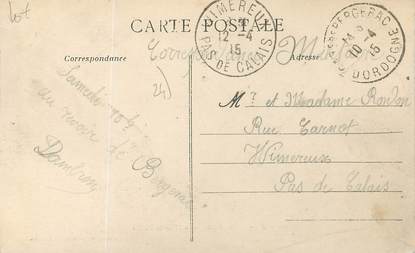 Lot
CARTE POSTALE
WIMEREUX
12 - 4
15
PAS DE CALAIS
BERGERAC
10 - 4
15
DORDOGNE
Correspondance
Adresse
24)
Samedi
au revoir de Bergerac
Mr et Madame
Rue Carnot
Wimereux
Pas de Calais